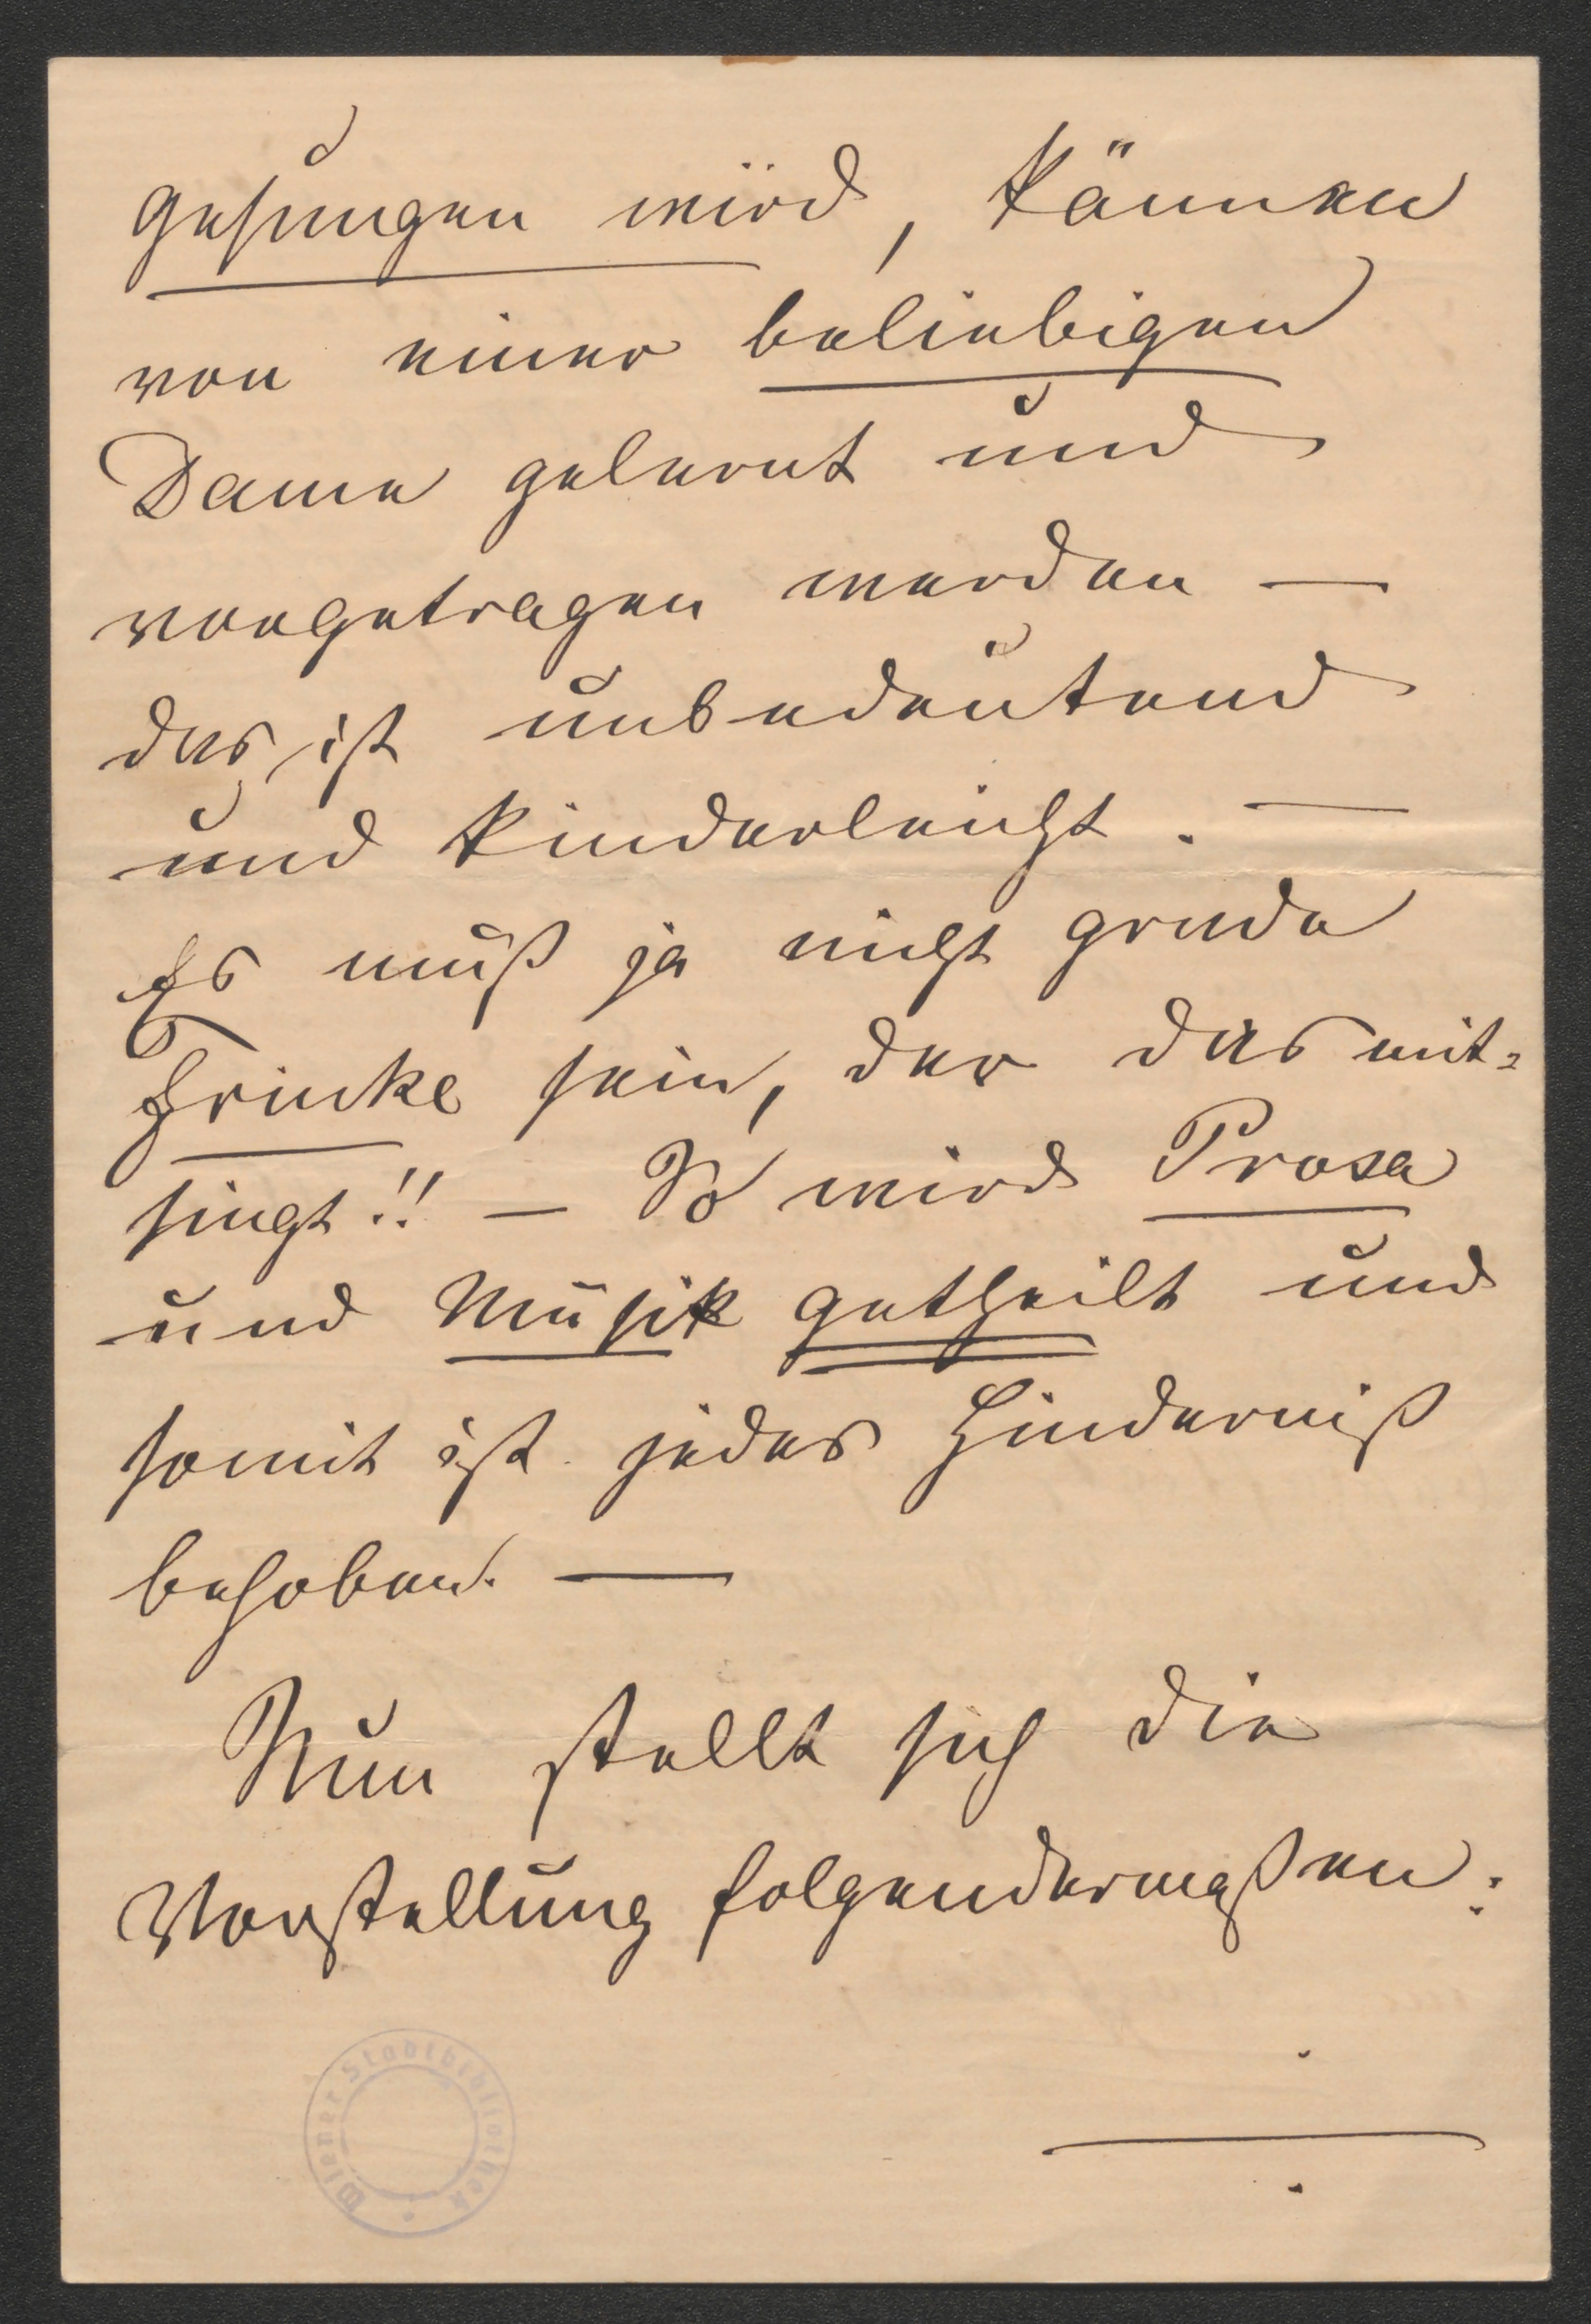 gesungen wird, können
von einer beliebigen
Dame gelernt und
vorgetragen werden —
das ist unbedeutend
und kinderleicht. —
Es muß ja nicht grade
Fricke sein, der das mit=
singt!! — So wird Prosa
und Musik getheilt und
somit ist jedes Hinderniß
behoben. —
Nun stellt sich die
Vorstellung folgendermaßen:
Wiener Stadtbibliothek